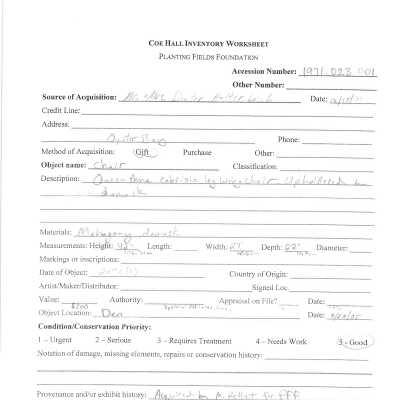 COE HALL INVENTORY WORKSHEET
PLANTING FIELDS FOUNDATION
Accession Number: 1971.023.001
Other Number:
Source of Acquisition: Mr. & Mrs. Date:
Credit Line:
Address:
Oyster Bay Phone:
Method of Acquisition: Gift Purchase Other:
Object name: Chair Classification:
Description: Queen Anne cabriole leg wing chair upholstered in
damask
Materials: Mahogany damask
Measurements: Height: Length: Width: Depth: 22" Diameter:
Markings or inscriptions:
Date of Object: Country of Origin:
Artist/Maker/Distributor: Signed Loc.
Value: $200 Authority: Appraisal on File? Date:
Object Location: Den Date:
Condition/Conservation Priority:
1 – Urgent 2 – Serious 3 – Requires Treatment 4 – Needs Work 5 - Good
Notation of damage, missing elements, repairs or conservation history:
Provenance and/or exhibit history: Acquired by for PFF